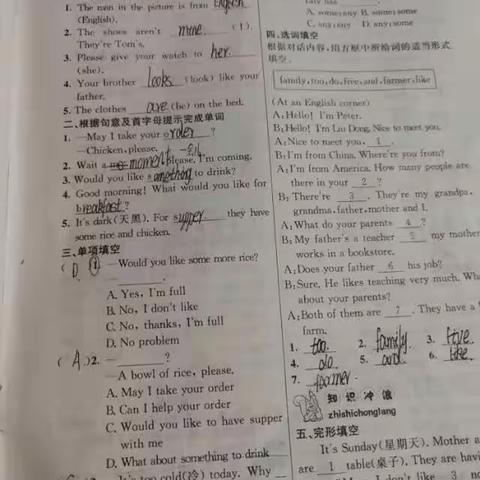 1. The man in the picture is from English
(English).
2. The shoes aren't mine (I).
They're Tom's.
3. Please give your watch to her
(she).
4. Your brother looks (look) like your
father.
5. The clothes are (be) on the bed.
二、根据句意及首字母提示完成单词
1. —May I take your order ?
—Chicken, please.
2. Wait a moment please. I'm coming.
3. Would you like something to drink?
4. Good morning! What would you like for
breakfast?
5. It's dark(天黑). For supper they have
some rice and chicken.
三、单项填空
( D )1. —Would you like some more rice?
—
A. Yes, I'm full
B. No, I don't like
C. No, thanks, I'm full
D. No problem
( A )2. — ?
—A bowl of rice, please.
A. May I take your order
B. Can I help your order
C. Would you like to have supper
with me
D. What about something to drink
It's too cold(冷) today. Why
A. some;any B. some;some
C. any;any D. any;some
四、选词填空
根据对话内容,用方框中所给词的适当形式
填空。
family,too,do,five,and,farmer,like
(At an English corner)
A: Hello! I'm Peter.
B: Hello! I'm Liu Dong. Nice to meet you.
A: Nice to meet you, 1 .
B: I'm from China. Where're you from?
A: I'm from America. How many people are
there in your 2 ?
B: There're 3 . They're my grandpa,
grandma, father, mother and I.
A: What do your parents 4 ?
B: My father's a teacher 5 my mother
works in a bookstore.
A: Does your father 6 his job?
B: Sure. He likes teaching very much. What
about your parents?
A: Both of them are 7 . They have a
farm.
1. too 2. family 3. five
4. do 5. and 6. like
7. farmer
知识冷浪
zhishichonglang
五、完形填空
It's Sunday(星期天). Mother a
are 1 table(桌子). They are havi
I don't like 3 no